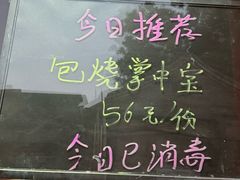 今日推荐
包烧掌中宝
56元/份
今日已消毒